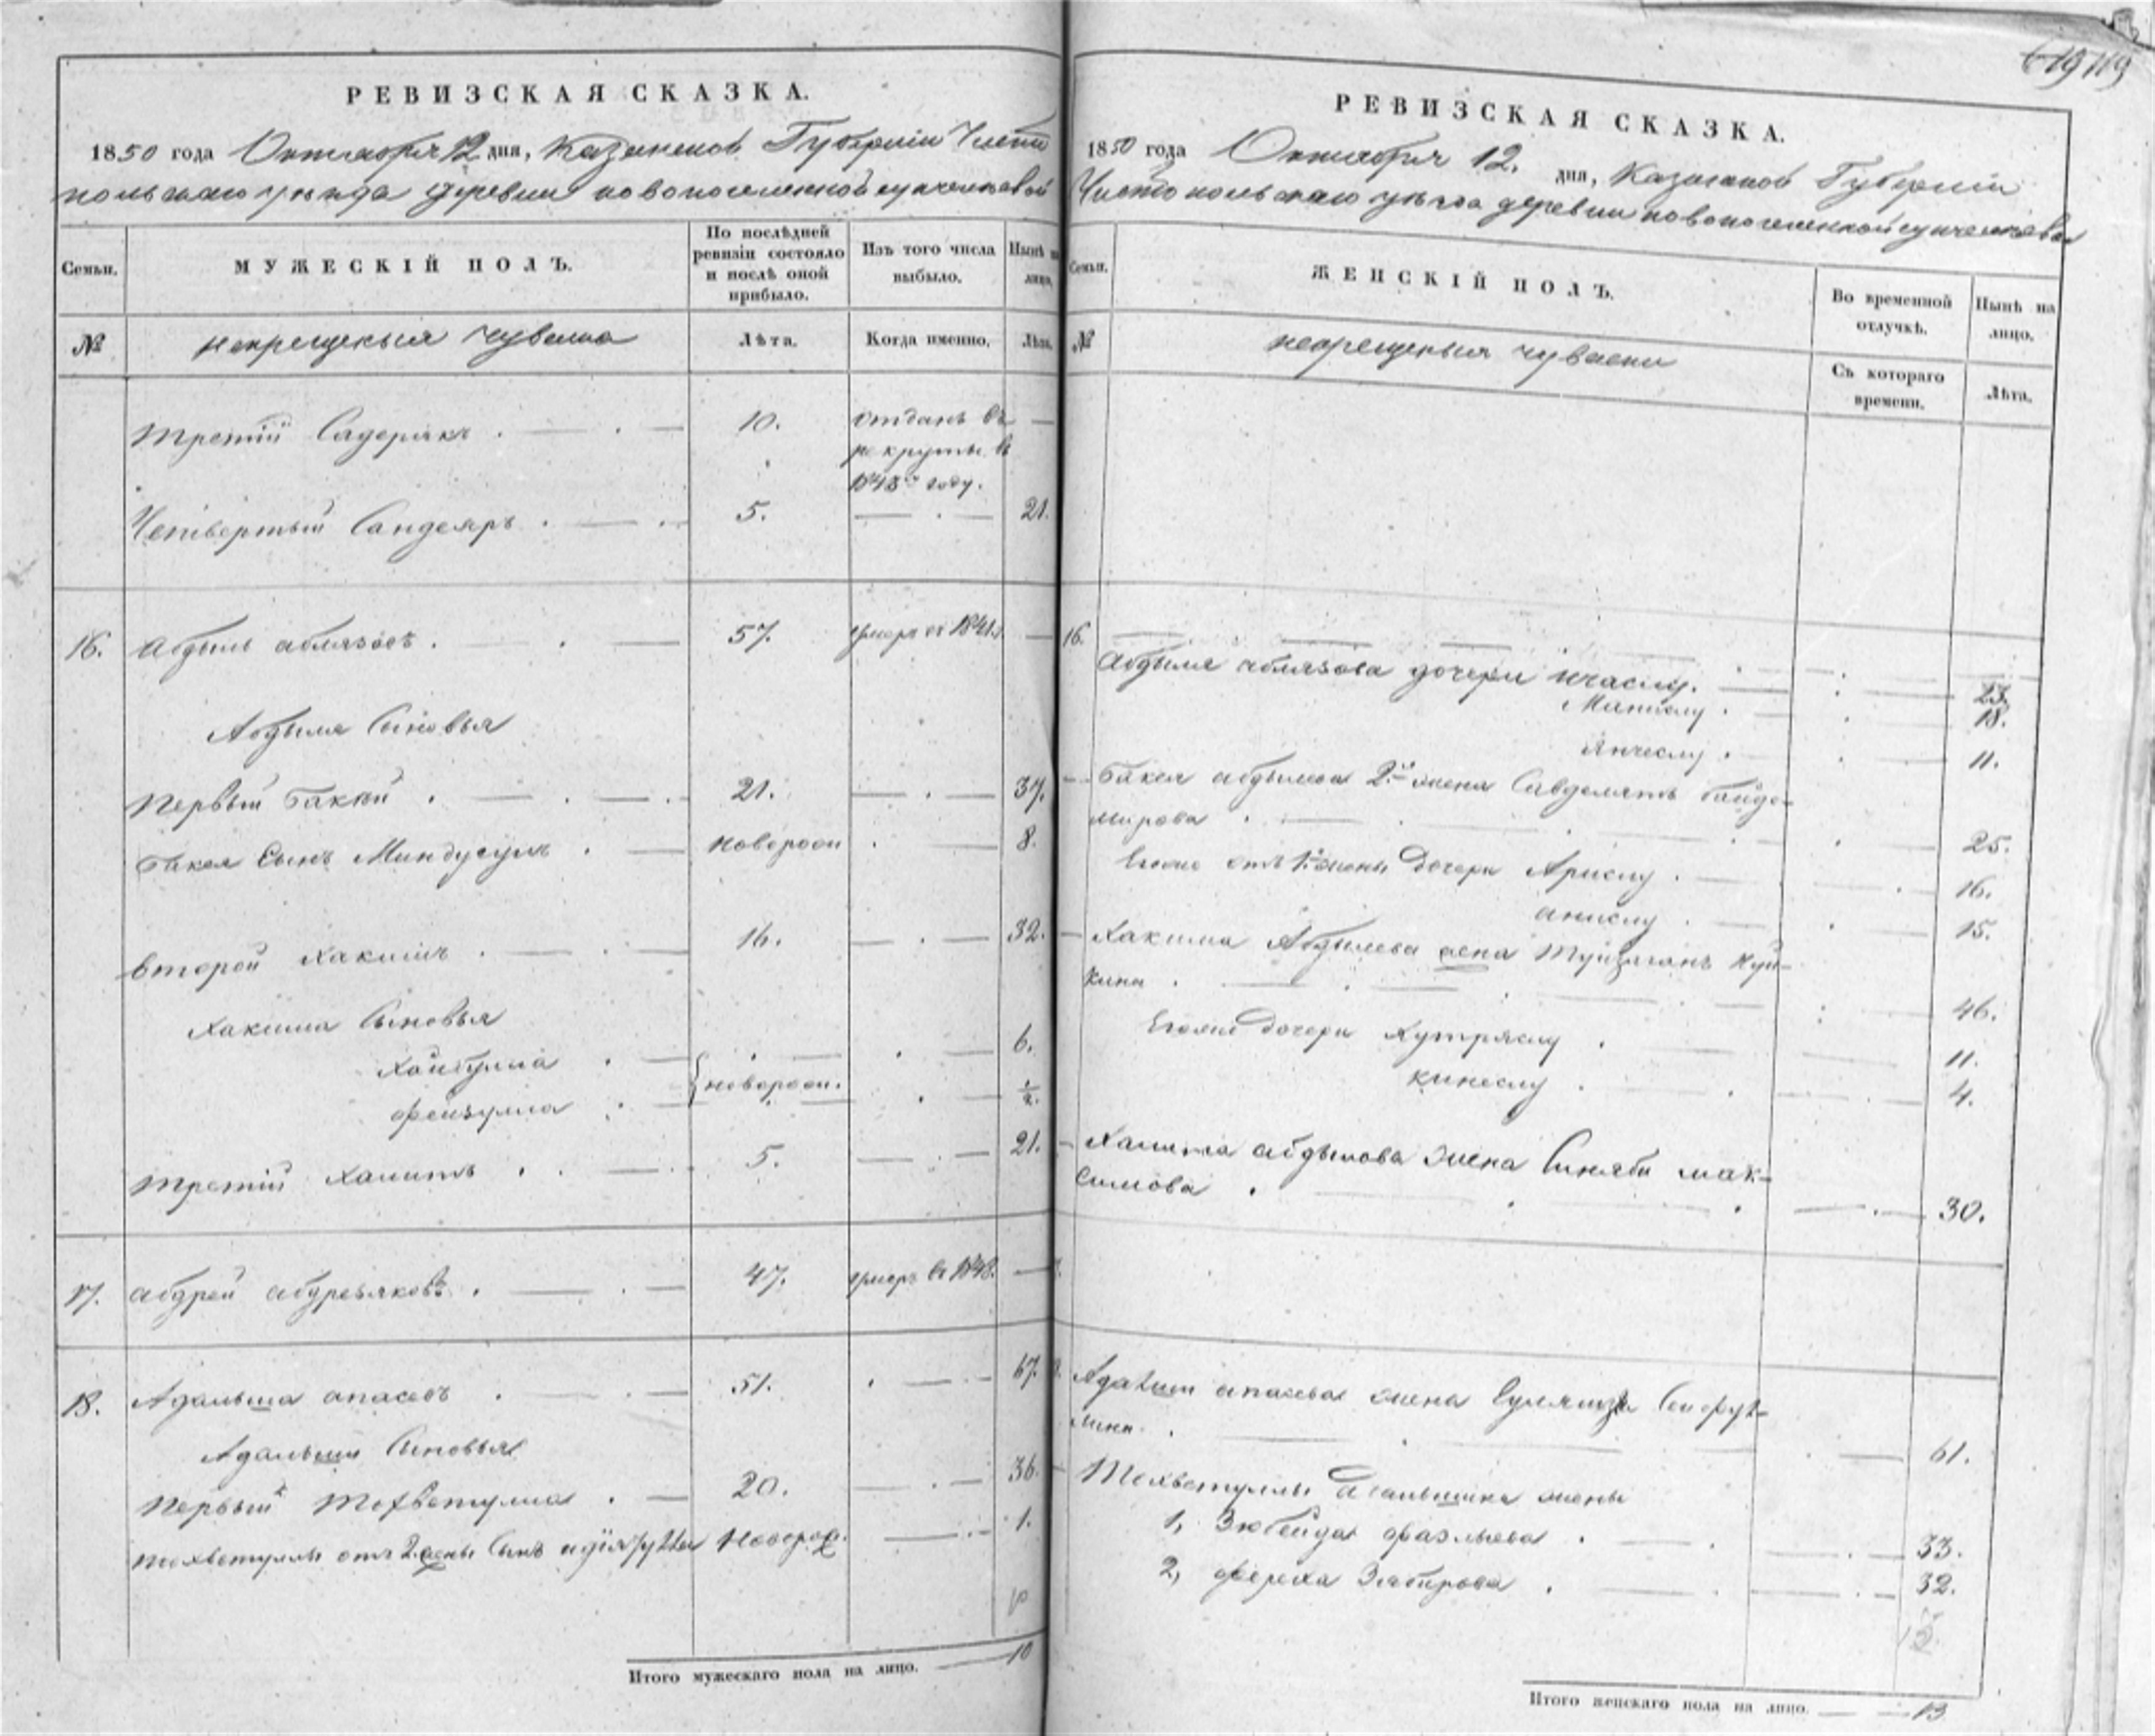 РЕВИЗСКАЯ СКАЗКА.
1850 года Октября 12 дня, Казанской Губернии Чисто
польскаго уѣзда деревни новопоселенной
Семьи.
МУЖЕСКІЙ ПОЛЪ.
По послѣдней ревизіи состояло и послѣ оной прибыло.
Изъ того числа выбыло.
Нынѣ на лицо.
№
некрещеныя чуваша
Лѣта.
Когда именно.
Лѣта.
третій Садерякъ . — . — 10. отданъ въ —
рекруты въ
184 году.
Четвертый Сандеяръ . — . 5. — . — 21.
16. Абдылъ аблязовъ . — . — 57. умеръ въ 1841. —
Абдыла Сыновья
первый Бакѣй . — . — . 21. — . — 37.
Бакея Сынъ Миндугулъ . — новорож . — 8.
второй Хакимъ . — . — 16. — . — 32.
Хакима Сыновья
Хайбулла . — . — . — 6.
фейзулла . — новорож. . — 1/2.
третій Халитъ . . — . 5. — . — 21.
17. абдрей абдреяковъ . — . — 47. умеръ въ 1848. —
18. Адалша апасовъ . — . — 51. . — . 67.
Адалши Сыновья
первый Тохветулла . — 20. — . — 36.
тохветуллы отъ 2 жены Сынъ Новорож. — . 1.
10
Итого мужескаго пола на лицо. — 10
619 119
РЕВИЗСКАЯ СКАЗКА.
1850 года Октября 12. дня, Казанской Губерніи
Чистопольскаго уѣзда деревни новопоселенной
Семьи.
ЖЕНСКІЙ ПОЛЪ.
Во временной отлучкѣ.
Нынѣ на лицо.
№
некрещеныя чуваски
Съ котораго времени.
Лѣта.
16.
Абдыла аблязова дочери ичаслу. — . — 23.
Минислу . — . — 18.
Янчеслу . — . — 11.
Бакея абдылова 2-я жена Савделятъ байде-
мирова . — . — 25.
Егоже отъ 1-й жены Дочери Арислу . — . 16.
анислу . — . — 15.
Хакима Абдылова жена
кина . — . — 46.
Егоже Дочери Кутряслу . — 11.
кинеслу . — . — 4.
Халита абдылова жена Синяби мак-
симова . — . — 30.
Адалши апасова жена
лина . — . — 61.
Тохветуллы Адалшина жены
1, Зюбейда фазлыева . — . — 33.
2, фереха Забирова . — . — 32.
13
Итого женскаго пола на лицо. — 13